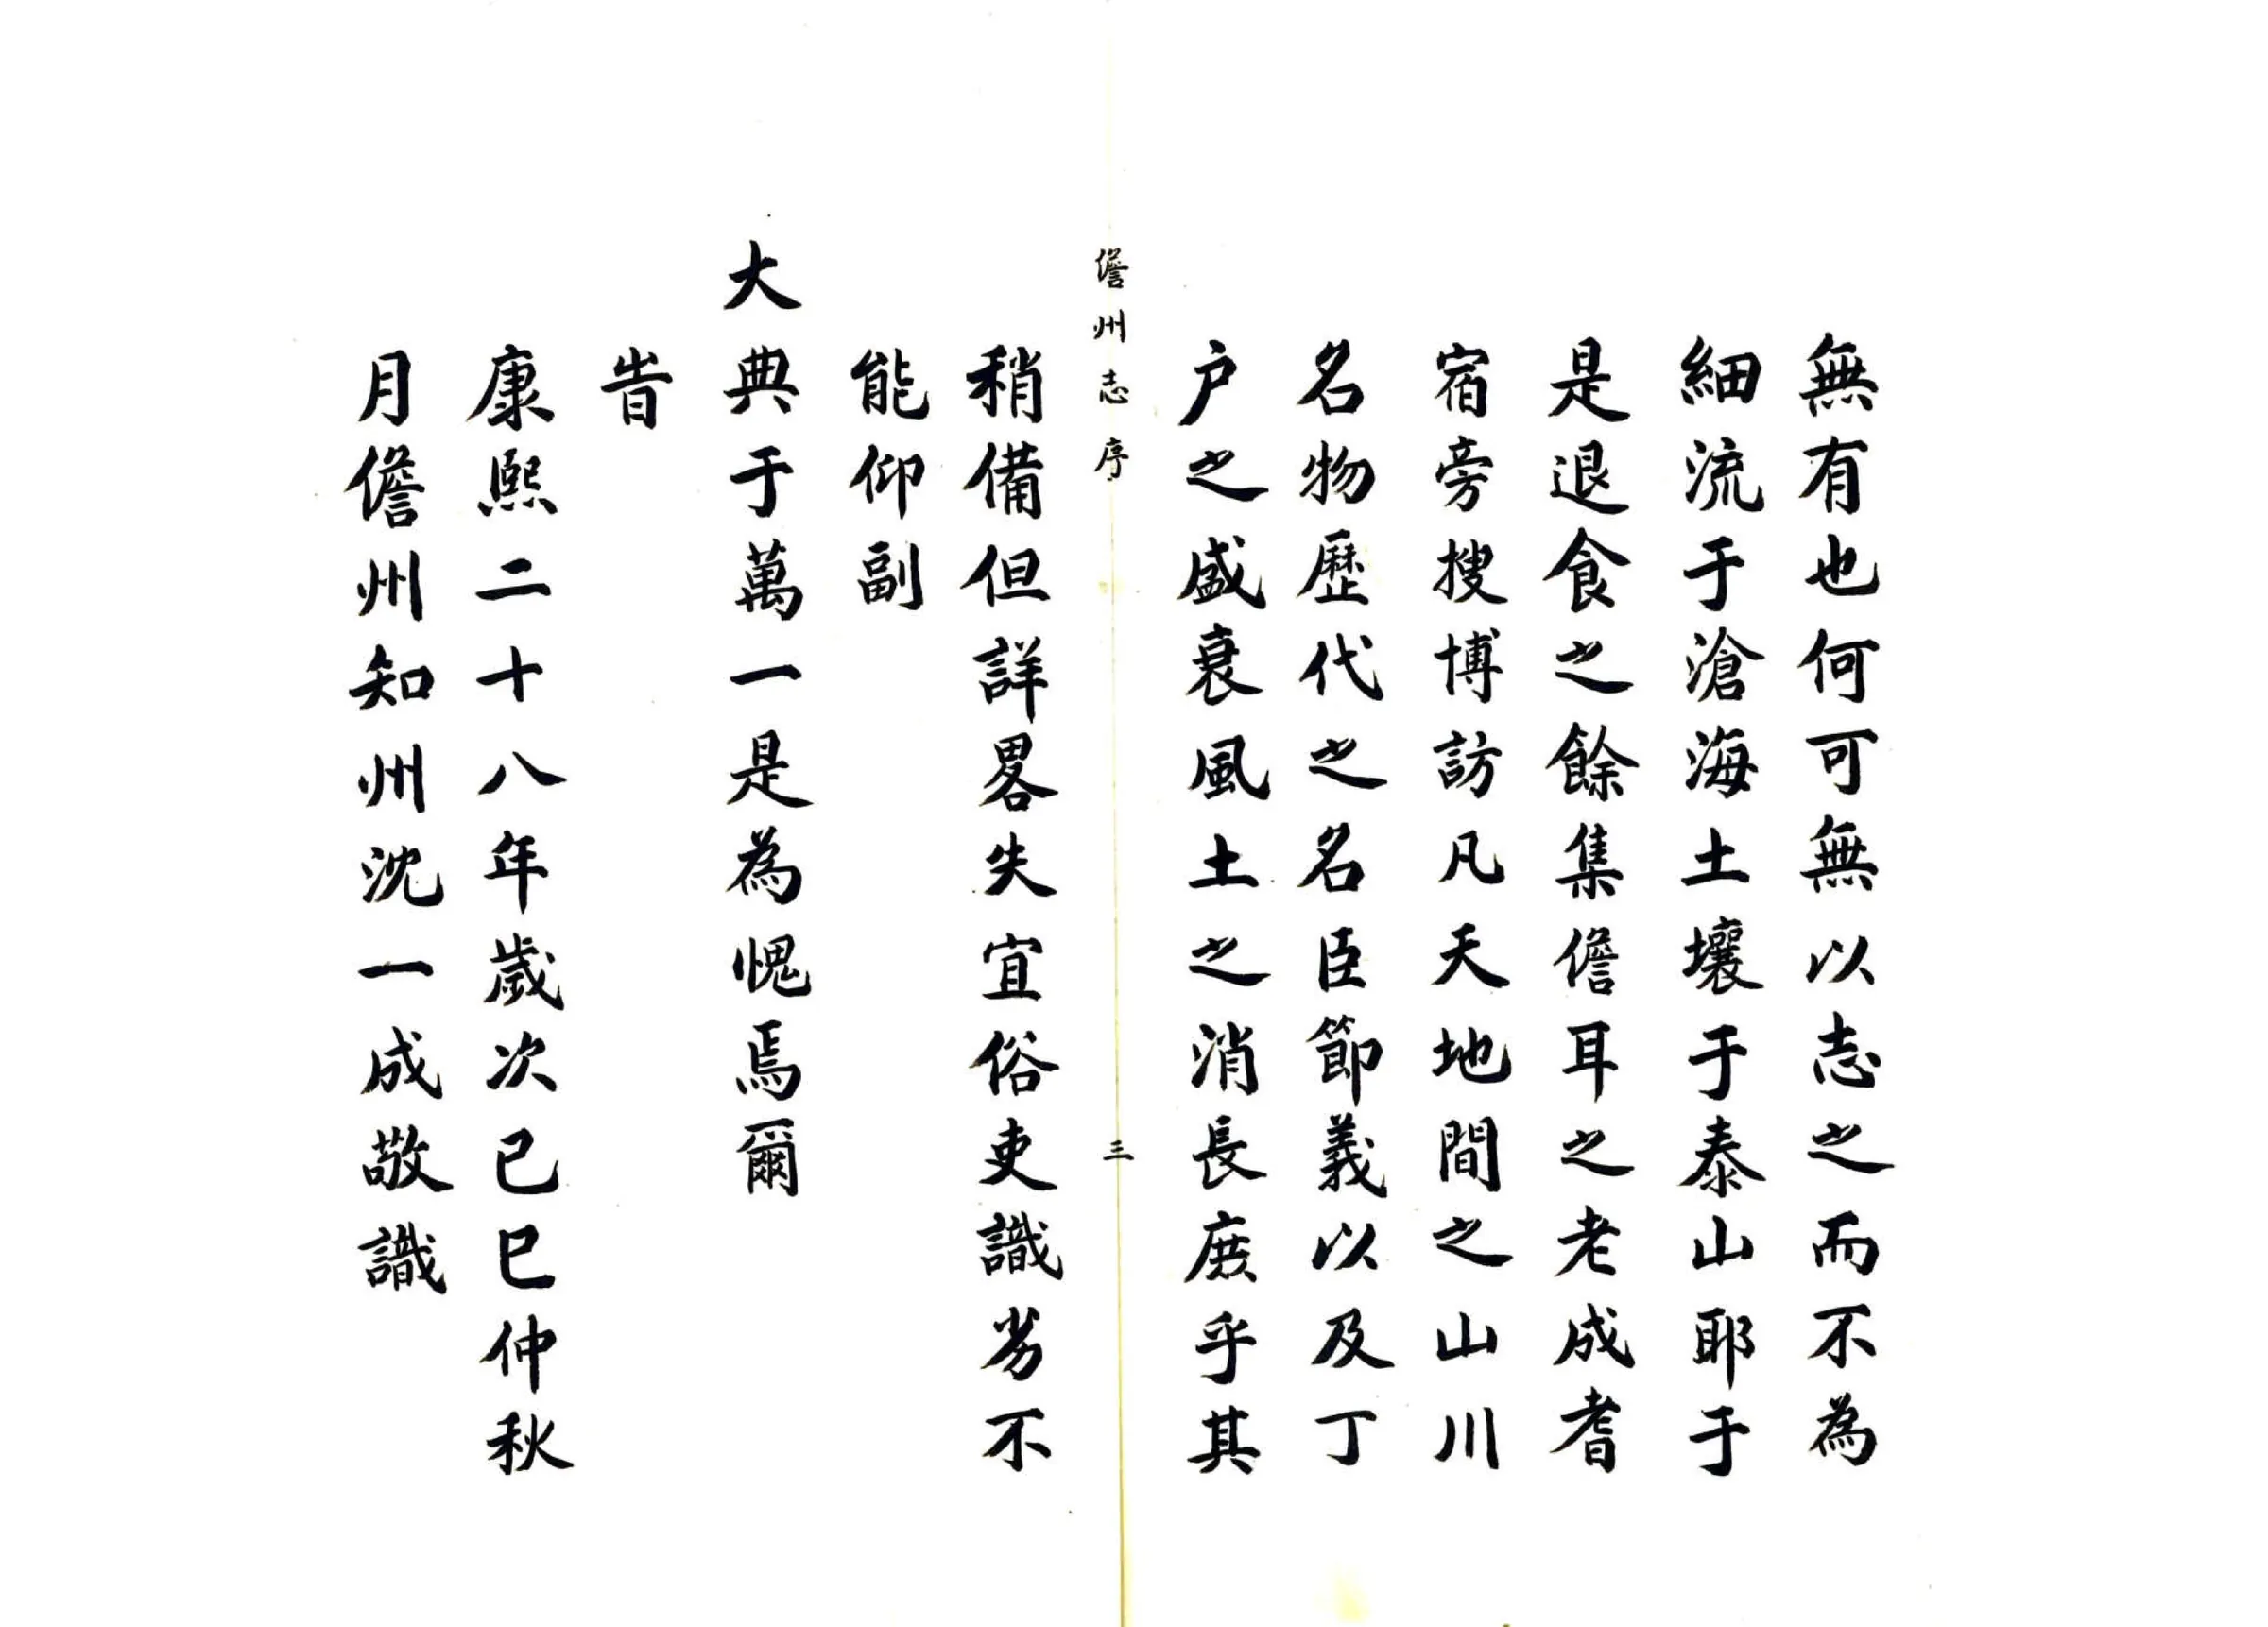 無有也何可無以志之而不為
細流于滄海土壤于泰山耶于
是退食之餘集儋耳之老成耆
宿旁搜博訪凡天地間之山川
名物歷代之名臣節義以及丁
户之盛衰風土之消長庶乎其
儋州志序 三
稍備但詳畧失宜俗吏識劣不
能仰副
大典于萬一是為愧焉爾
旹
康熙二十八年歲次己巳仲秋
月儋州知州沈一成敬識